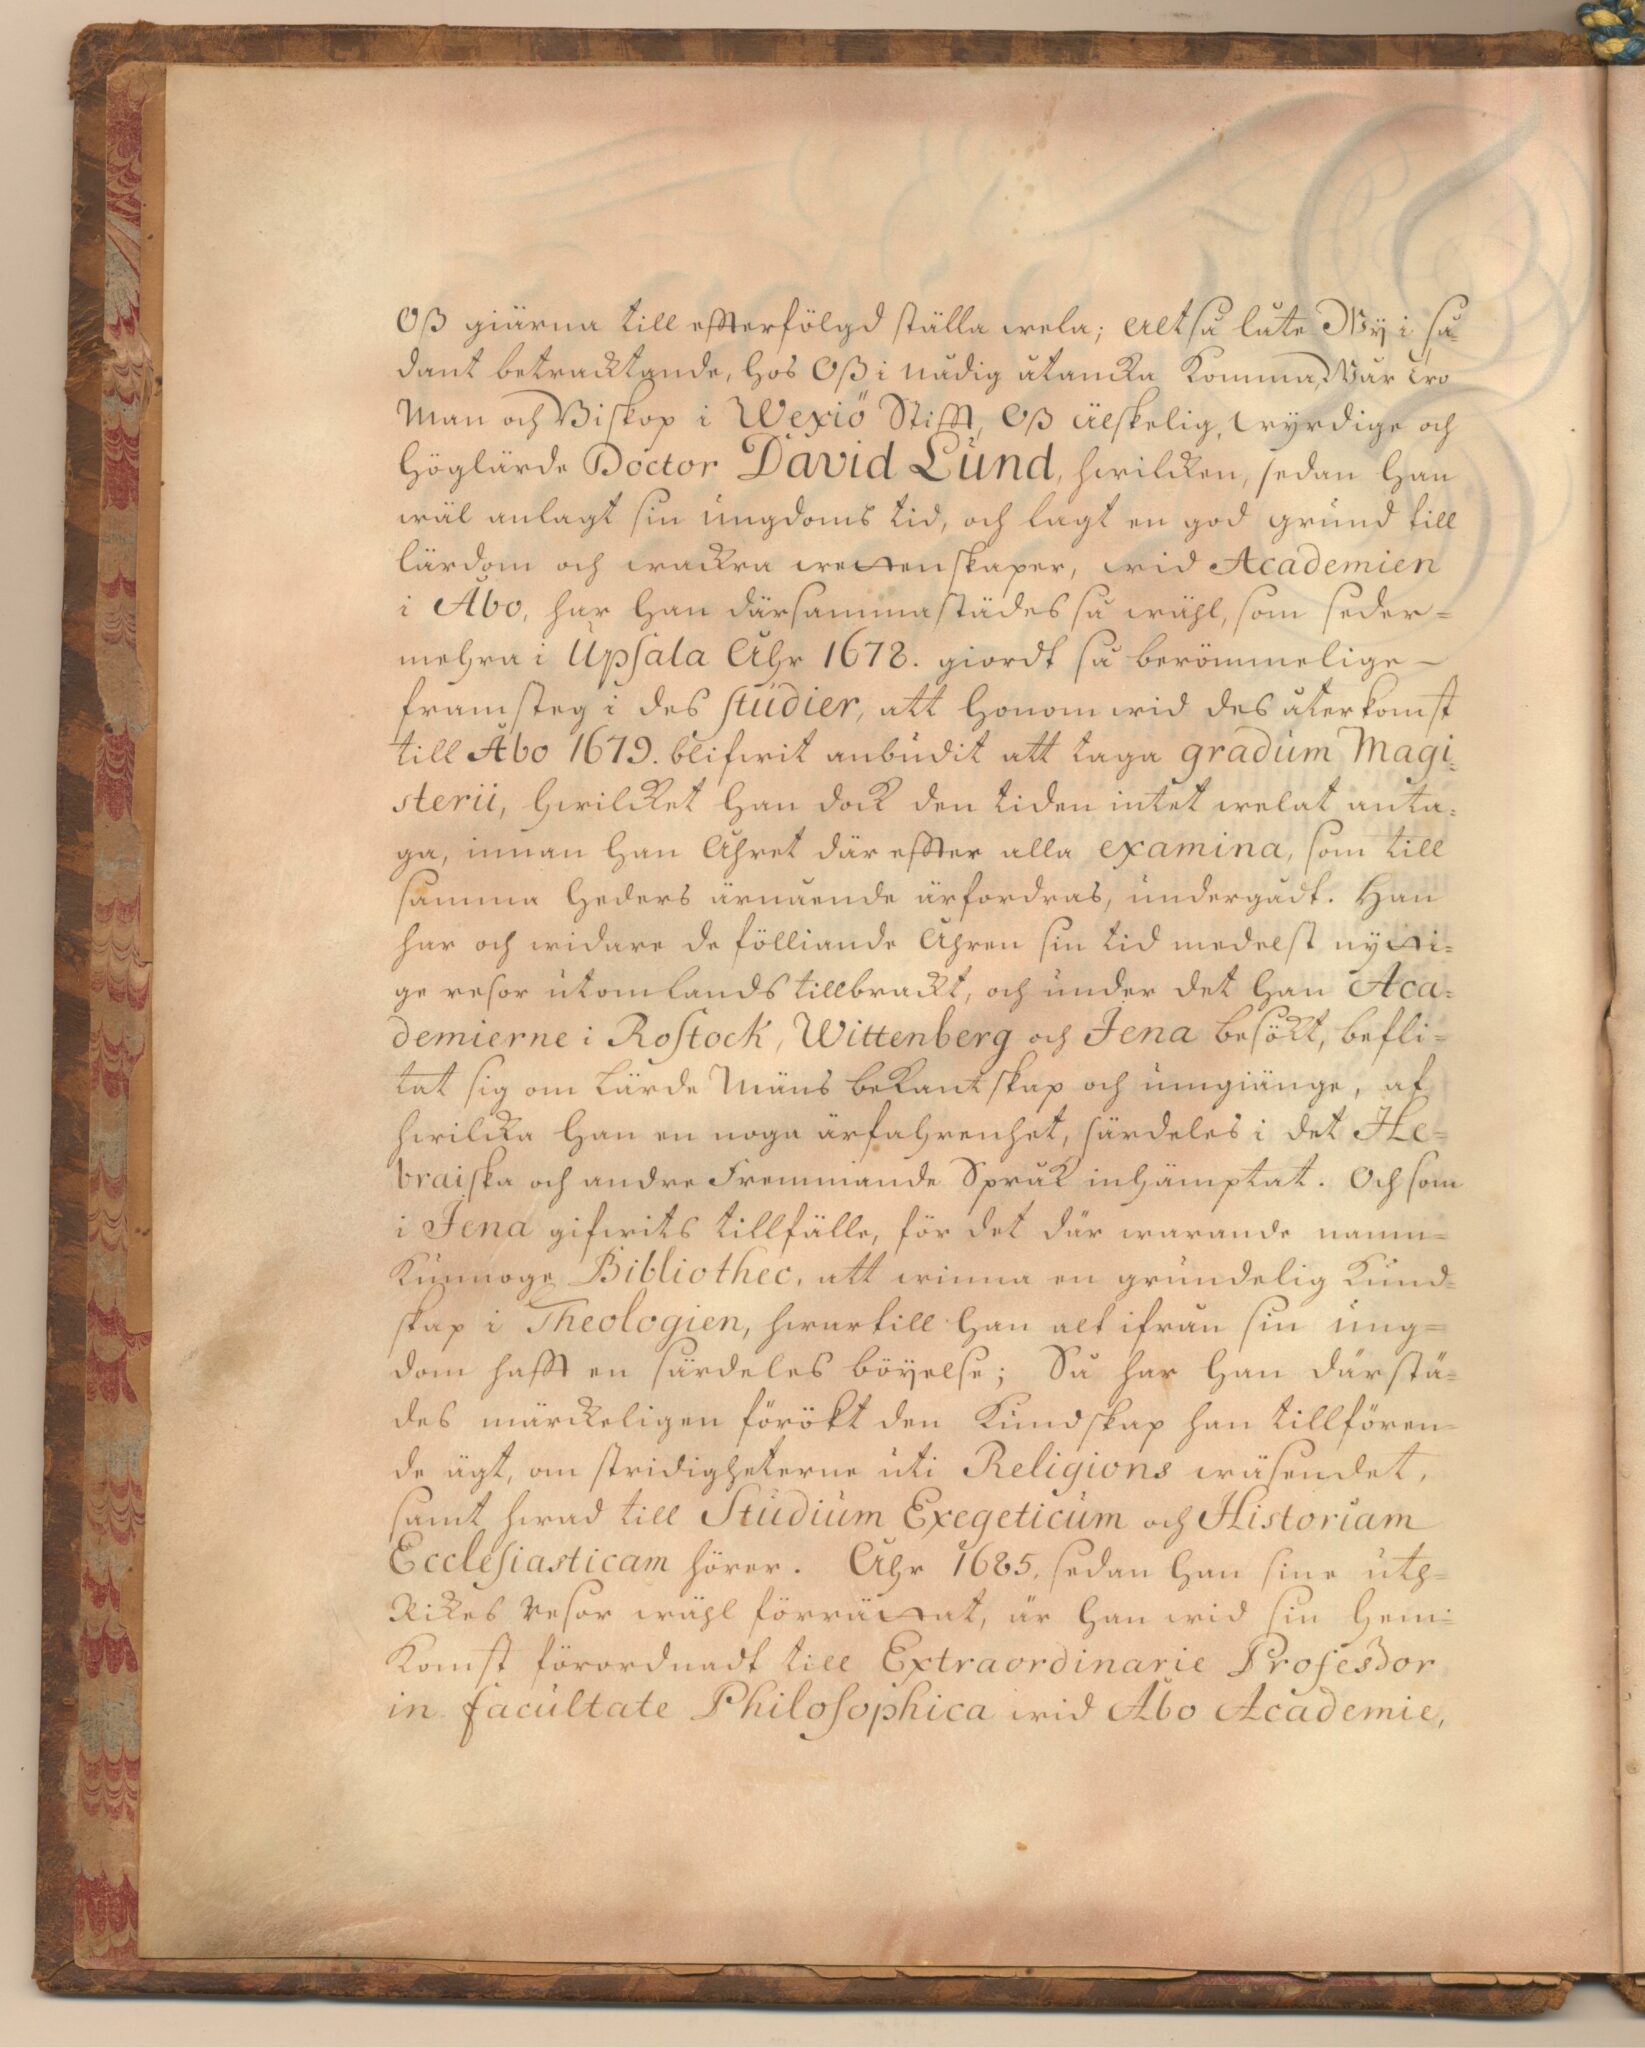 Oß giärna till effterfölgd ställa wela; Altså låte Wy i så-
dant betracktande, hos Oß i nådig åtancka komma, Wår tro
Man och Biskop i Wexiö Stifft, Oß älskelig, Wyrdige och
Höglärde Doctor David Lund, hwilcken, sedan han
wäl anlagt sin ungdoms tid, och lagt en god grund till
lärdom och wackra wettenskaper, wid Academien
i Åbo, har han därsammastädes så wähl, som seder-
mehra i Upsala Åhr 1678. giordt så berömmelige
framsteg i des studier, att honom wid des återkomst
till Åbo 1679. blifwit anbudit att taga gradum Magi-
sterii, hwilcket han dock den tiden intet welat anta-
ga, innan han Åhret där effter alla examina, som till
samma heders ärnående ärfordras, undergådt. Han
har och widare de fölliande Åhren sin tid medelst nytti-
ge resor utomlands tillbrackt, och under det han Aca-
demierne i Rostock, Wittenberg och Jena besökt, befli-
tat sig om Lärde Mäns bekantskap och umgiänge, af
hwilcka han en noga ärfahrenhet, särdeles i det He-
braiska och andre Fremmande Språk inhämptat. Och som
i Jena gifwits tillfälle, för det där warande namn-
kunnoge Bibliothec, att winna en grundelig kund-
skap i Theologien, hwartill han alt ifrån sin ung-
dom hafft en särdeles böyelse; Så har han därstä-
des märckeligen förökt den kundskap han tillfören-
de ägt, om stridigheterne uti Religions wäsendet,
samt hwad till Studium Exegeticum och Historiam
Ecclesiasticam hörer. Åhr 1685, sedan han sine uth-
Rikes resor wähl förrättat, är han wid sin hem-
komst förordnadt till Extraordinarie Professor
in facultate Philosophica wid Åbo Academie,